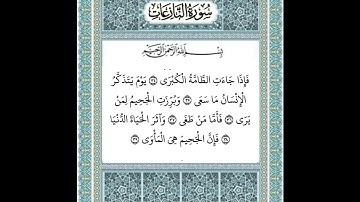 سُورَةُ النَّازِعَات
بِسْمِ اللَّهِ الرَّحْمَنِ الرَّحِيمِ
فَإِذَا جَاءَتِ الطَّامَّةُ الْكُبْرَى ﴿٣٤﴾ يَوْمَ يَتَذَكَّرُ
الْإِنْسَانُ مَا سَعَى ﴿٣٥﴾ وَبُرِّزَتِ الْجَحِيمُ لِمَنْ
يَرَى ﴿٣٦﴾ فَأَمَّا مَنْ طَغَى ﴿٣٧﴾ وَآثَرَ الْحَيَاةَ الدُّنْيَا
﴿٣٨﴾ فَإِنَّ الْجَحِيمَ هِيَ الْمَأْوَى ﴿٣٩﴾